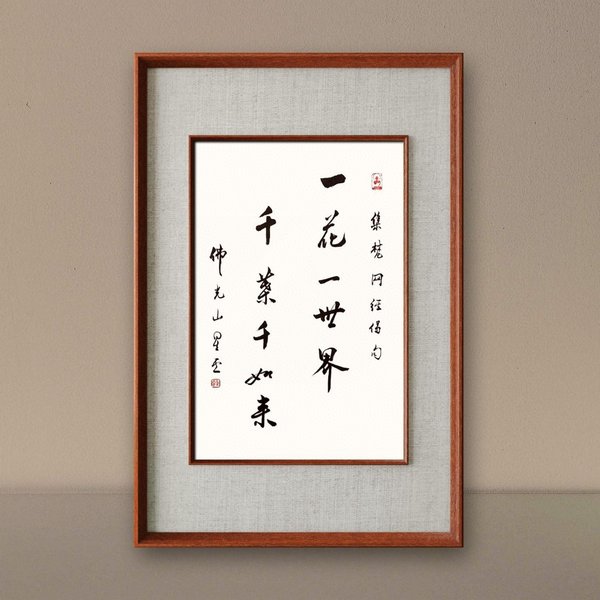 集梵网經偈句
一花一世界
千葉千如来
佛光山星雲